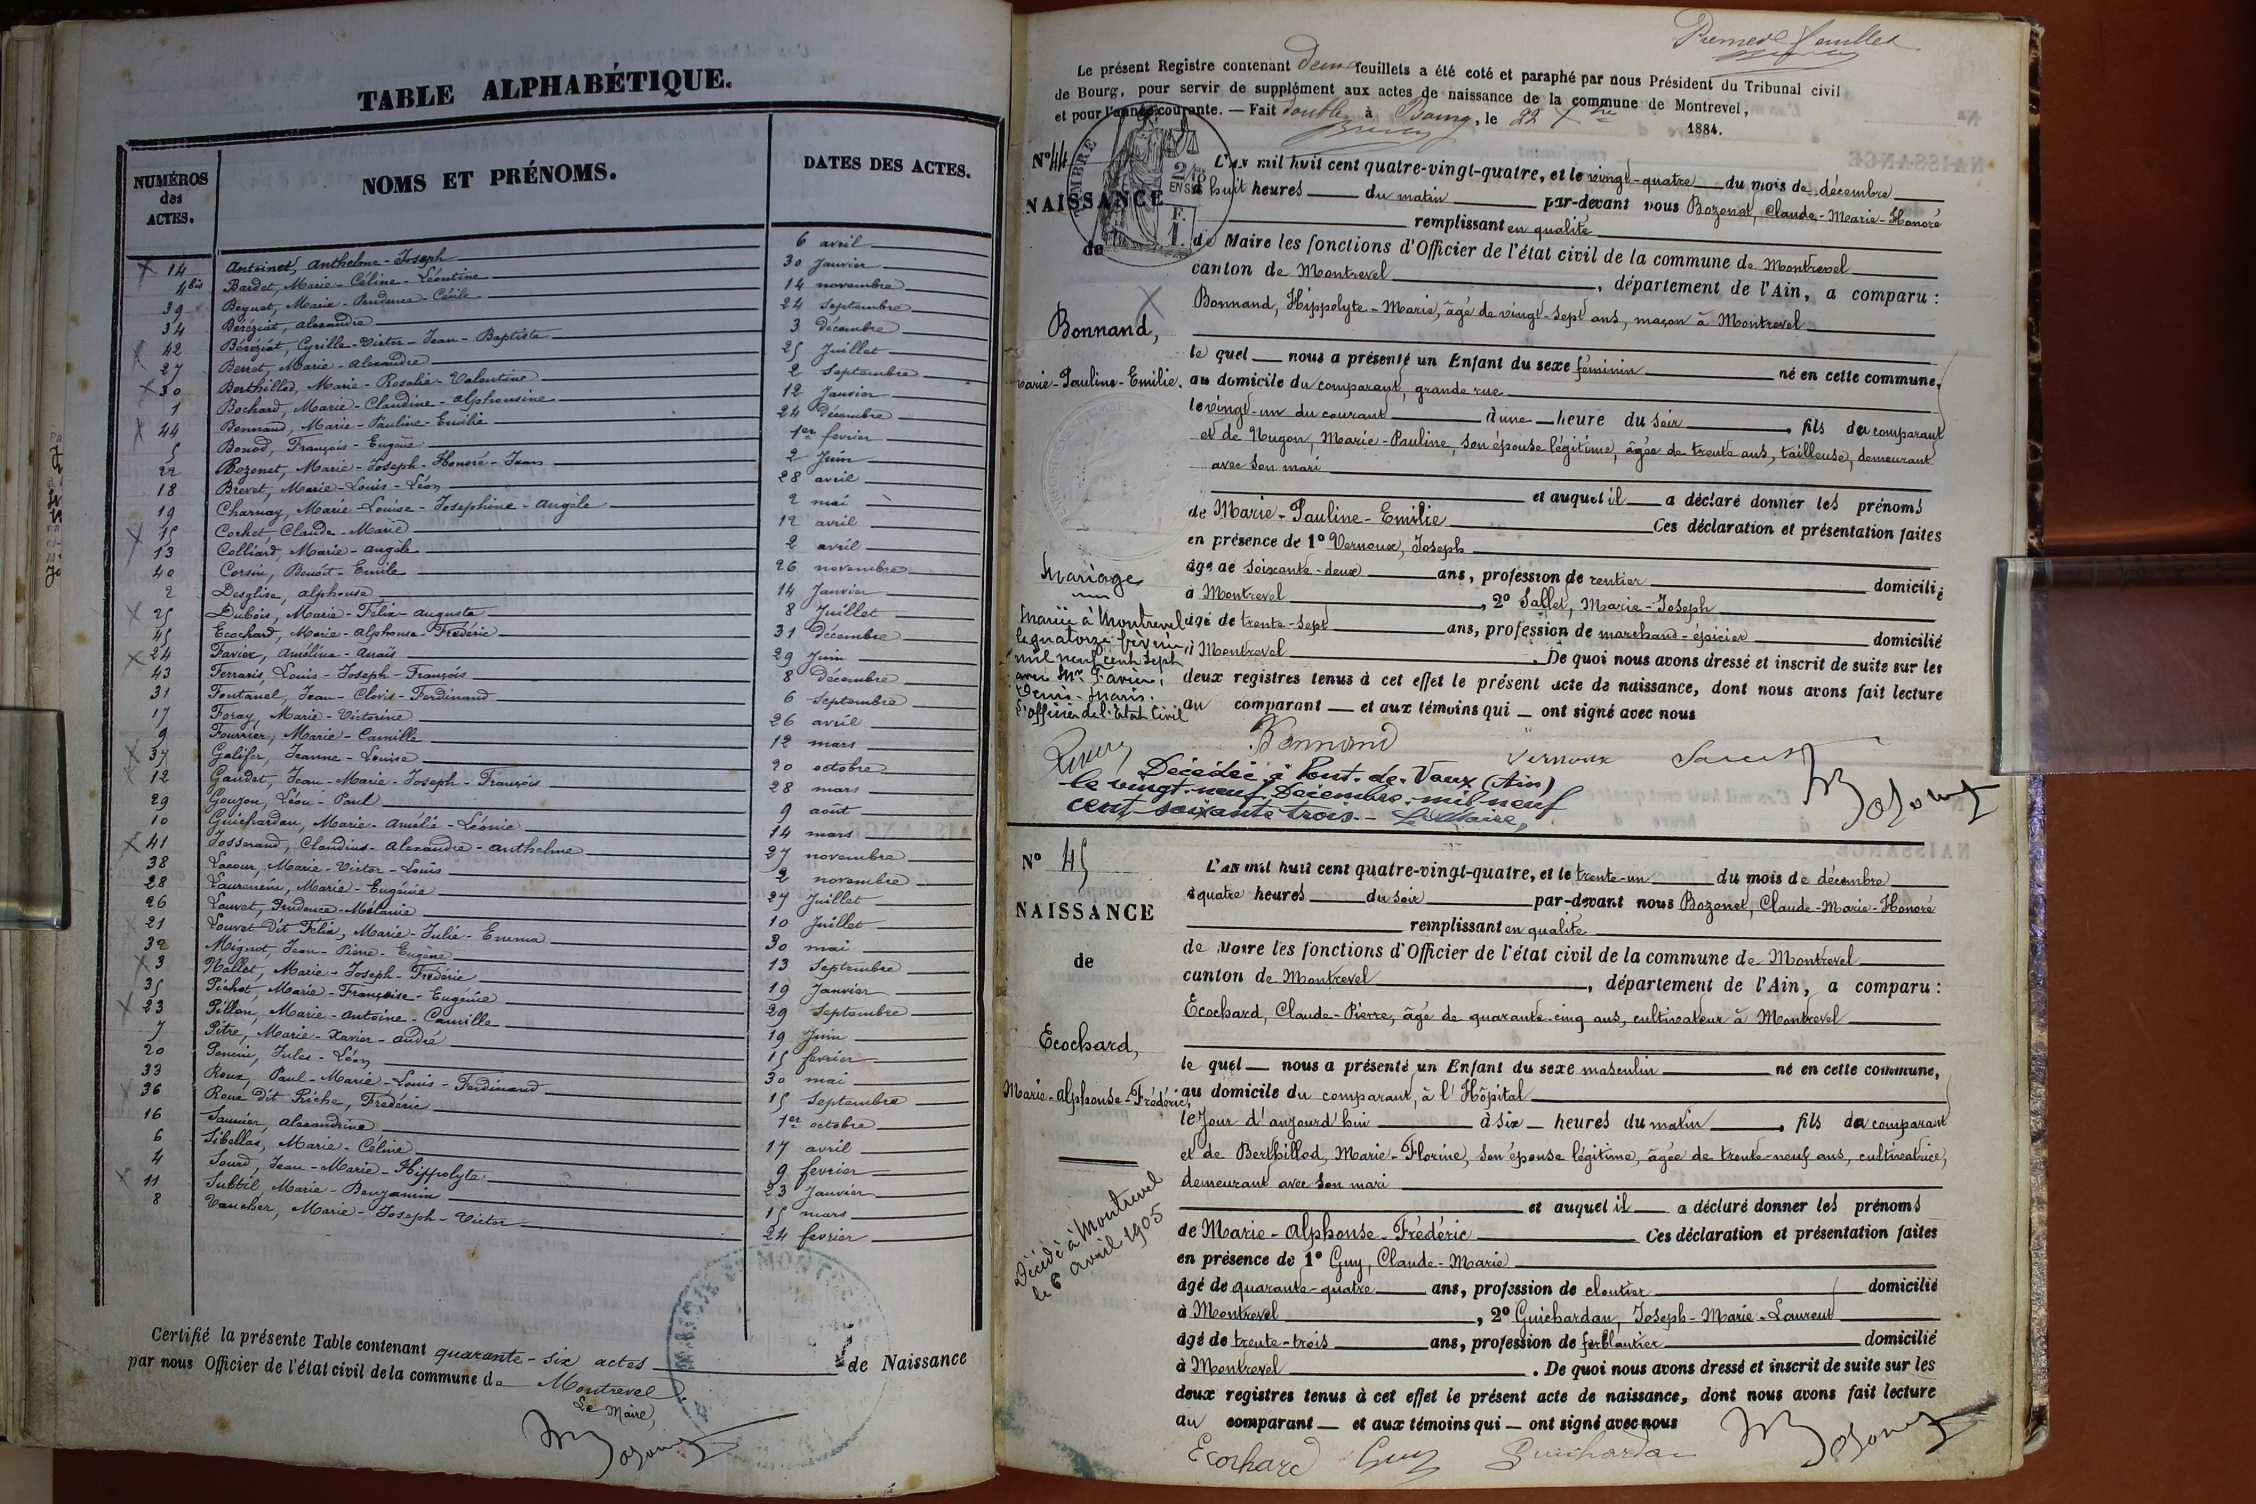 TABLE ALPHABÉTIQUE.
NUMÉROS des ACTES.
NOMS ET PRÉNOMS.
DATES DES ACTES.
14 Antoinet, Anthelme-Joseph 6 avril
4 bis Bardet, Marie-Céline-Léontine 30 Janvier
39 Beguet, Marie-Prudence-Cécile 14 novembre
34 Béréziat, alexandre 24 Septembre
42 Béréziat, Cyrille-Victor-Jean-Baptiste 3 décembre
27 Berret, Marie-alexandre 25 Juillet
30 Berthillod, Marie-Rosalie-Valentine 2 Septembre
1 Bochard, Marie-Claudine-alphonsine 12 Janvier
44 Bonnand, Marie-Pauline-Emilie 24 décembre
5 Bonod, François-Eugène 1er fevrier
22 Bozonet, Marie-Joseph-Honoré-Jean 2 Juin
18 Brevet, Marie-Louis-Léon 28 avril
19 Charnay, Marie-Louise-Josephine-angèle 2 mai
15 Cochet, Claude-Marie 12 avril
13 Colliard, Marie-angèle 2 avril
40 Corsin, Benoît-Emile 26 novembre
2 Desglise, alphonse 14 Janvier
25 Dubois, Marie-Félix-auguste 8 Juillet
45 Ecochard, Marie-alphonse-Frédéric 31 Décembre
24 Favier, améline-anaïs 29 Juin
43 Ferraris, Louis-Joseph-François 8 décembre
31 Fontanel, Jean-Clovis-Ferdinand 6 Septembre
17 Foray, Marie-Victorine 26 avril
9 Fourrier, Marie-Camille 12 mars
37 Galifer, Jeanne-Louise 20 octobre
12 Gaudet, Jean-Marie-Joseph-François 28 mars
29 Goujon, Léon-Paul 9 août
10 Guichardan, Marie-amélie-Léonie 14 mars
41 Josserand, Claudius-alexandre-anthelme 27 novembre
38 Lacour, Marie-Victor-Louis 2 novembre
28 Laurencin, Marie-Eugénie 27 Juillet
26 Louvet, Prudence-Mélanie 10 Juillet
21 Louvet dit Félix, Marie-Julie-Emma 30 mai
32 Mignot, Jean-Pierre-Eugène 13 Septembre
3 Nallet, Marie-Joseph-Frédéric 19 Janvier
35 Pichot, Marie-Françoise-Eugénie 29 Septembre
23 Pillon, Marie-antoine-Camille 19 Juin
7 Pitre, Marie-Xavier-andré 15 fevrier
20 Poncin, Jules-Léon 30 mai
33 Roux, Paul-Marie-Louis-Ferdinand 15 Septembre
36 Roux dit Riche, Frédéric 1er octobre
16 Saunier, alexandrine 17 avril
6 Sibellas, Marie-Céline 9 fevrier
4 Sourd, Jean-Marie-Hippolyte 23 Janvier
11 Subtil, Marie-Benjamin 15 mars
8 Vaucher, Marie-Joseph-Victor 24 fevrier
Certifié la présente Table contenant quarante-six actes de Naissance
par nous Officier de l'état civil de la commune de Montrevel
Le Maire,
Premier feuillet
Le présent Registre contenant deux feuillets a été coté et paraphé par nous Président du Tribunal civil
de Bourg, pour servir de supplément aux actes de naissance de la commune de Montrevel,
et pour l'année courante. — Fait double à Bourg, le 22 Xbre 1884.
TIMBRE
2/10 EN SUS
F. 1.
N° 44
NAISSANCE
de
Bonnand,
Marie-Pauline-Emilie.
L'an mil huit cent quatre-vingt-quatre, et le vingt-quatre du mois de décembre
à huit heures du matin par-devant nous Bozonet, Claude-Marie-Honoré
remplissant en qualité
de Maire les fonctions d'Officier de l'état civil de la commune de Montrevel
canton de Montrevel, département de l'Ain, a comparu :
Bonnand, Hippolyte-Marie, âgé de vingt-sept ans, maçon à Montrevel
le quel nous a présenté un Enfant du sexe féminin né en cette commune,
au domicile du comparant, grande rue
le vingt-un du courant à une heure du soir, fils du comparant
et de Nugon, Marie-Pauline, son épouse légitime, âgée de trente ans, tailleuse, demeurant
avec son mari
et auquel il a déclaré donner les prénoms
de Marie-Pauline-Emilie Ces déclaration et présentation faites
en présence de 1° Vernoux, Joseph
âgé de soixante-deux ans, profession de rentier domicilié
à Montrevel, 2° Sallet, Marie-Joseph
âgé de trente-sept ans, profession de marchand-épicier domicilié
à Montrevel. De quoi nous avons dressé et inscrit de suite sur les
deux registres tenus à cet effet le présent acte de naissance, dont nous avons fait lecture
au comparant et aux témoins qui ont signé avec nous
Mariage
Mariée à Montrevel
le quatorze février
mil neuf cent sept
avec Mr Favier
Denis-Marie.
L'officier de l'Etat Civil
Bonnand Vernoux
Décédée à Pont-de-Vaux (Ain)
le vingt-neuf Décembre mil neuf
cent soixante trois.- Le Maire,
N° 45
NAISSANCE
de
Ecochard,
Marie-Alphonse-Frédéric.
L'an mil huit cent quatre-vingt-quatre, et le trente-un du mois de décembre
à quatre heures du soir par-devant nous Bozonet, Claude-Marie-Honoré
remplissant en qualité
de Maire les fonctions d'Officier de l'état civil de la commune de Montrevel
canton de Montrevel, département de l'Ain, a comparu :
Ecochard, Claude-Pierre, âgé de quarante-cinq ans, cultivateur à Montrevel
le quel nous a présenté un Enfant du sexe masculin né en cette commune,
au domicile du comparant, à l'Hôpital
le Jour d'aujourd'hui à six heures du matin, fils du comparant
et de Berthillod, Marie-Florine, son épouse légitime, âgée de trente-neuf ans, cultivatrice,
demeurant avec son mari
et auquel il a déclaré donner les prénoms
de Marie-Alphonse-Frédéric Ces déclaration et présentation faites
en présence de 1° Guy, Claude-Marie
âgé de quarante-quatre ans, profession de cloutier domicilié
à Montrevel, 2° Guichardan, Joseph-Marie-Laurent
âgé de trente-trois ans, profession de ferblantier domicilié
à Montrevel. De quoi nous avons dressé et inscrit de suite sur les
deux registres tenus à cet effet le présent acte de naissance, dont nous avons fait lecture
au comparant et aux témoins qui ont signé avec nous
Décédé à Montrevel
le 6 avril 1905
Ecochard Guy Guichardan